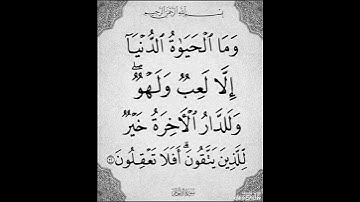 بسم الله الرحمن الرحيم
وَمَا ٱلْحَيَوٰةُ ٱلدُّنْيَآ
إِلَّا لَعِبٌ وَلَهْوٌ ۖ
وَلَلدَّارُ ٱلْـَٔاخِرَةُ خَيْرٌ
لِّلَّذِينَ يَتَّقُونَ ۗ أَفَلَا تَعْقِلُونَ